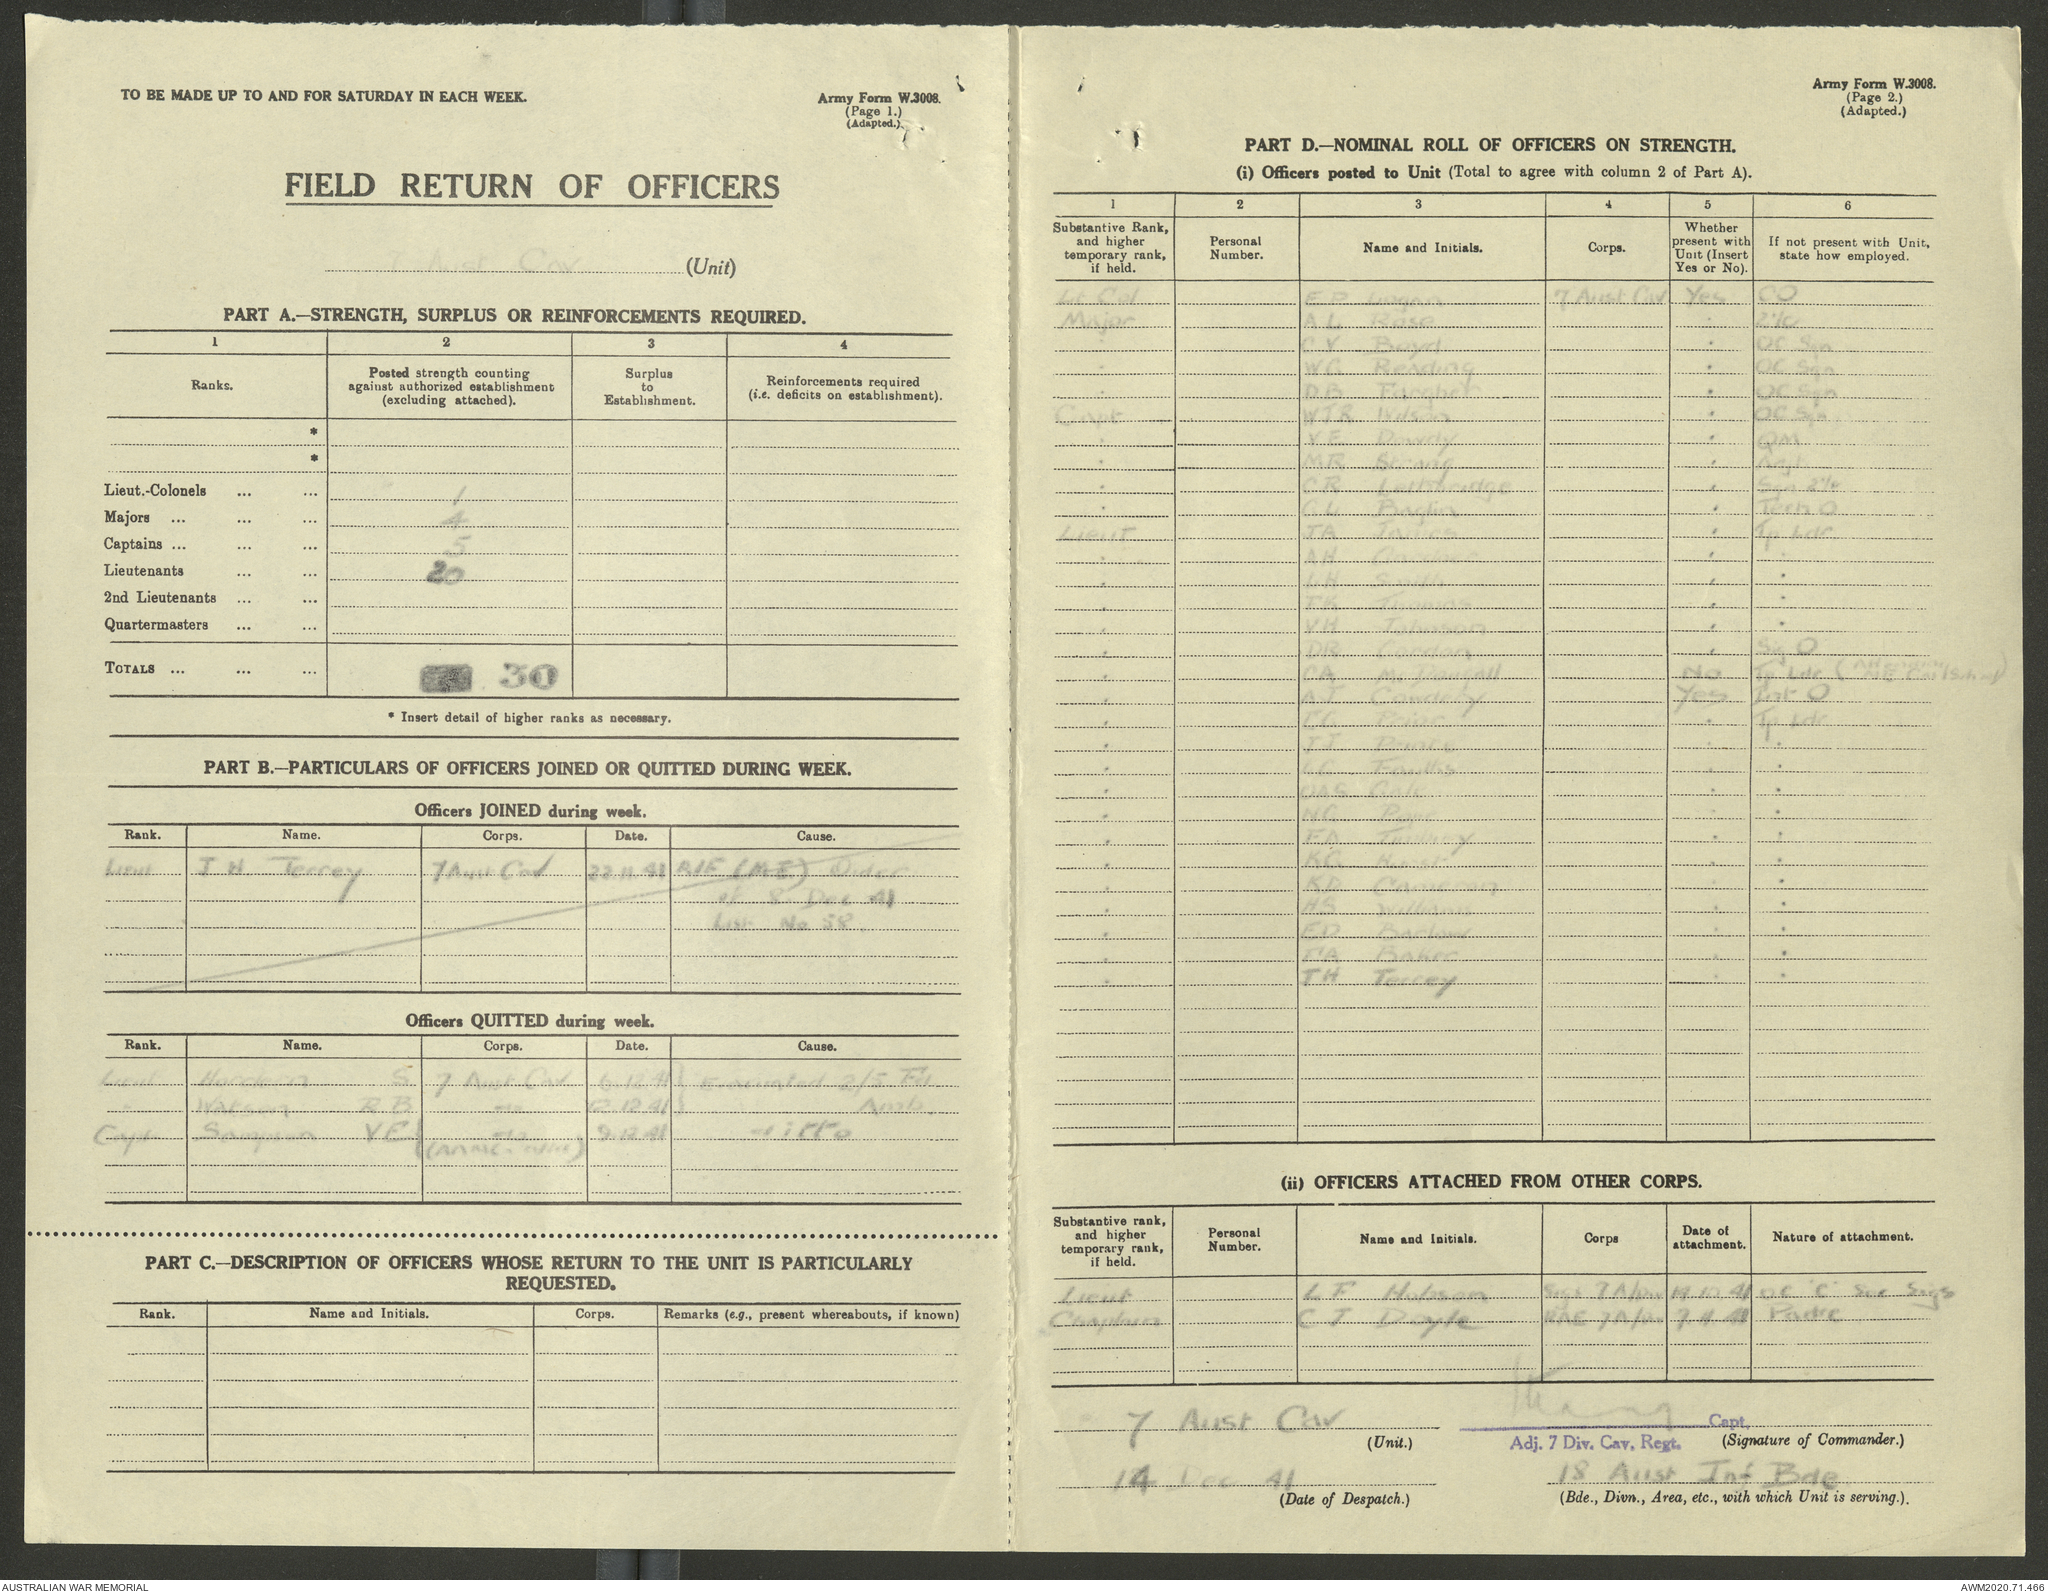 TO BE MADE UP TO AND FOR SATURDAY IN EACH WEEK.
Army Form W.3008.
(Page 1.)
(Adapted.)
FIELD RETURN OF OFFICERS
7 Aust Cav (Unit)
PART A.—STRENGTH, SURPLUS OR REINFORCEMENTS REQUIRED.
1 2 3 4
Ranks. Posted strength counting against authorized establishment (excluding attached). Surplus to Establishment. Reinforcements required (i.e. deficits on establishment).
*
*
Lieut.-Colonels ... ... 1
Majors ... ... ... 4
Captains ... ... ... 5
Lieutenants ... ... 20
2nd Lieutenants ... ...
Quartermasters ... ...
TOTALS ... ... ... 30
* Insert detail of higher ranks as necessary.
PART B.—PARTICULARS OF OFFICERS JOINED OR QUITTED DURING WEEK.
Officers JOINED during week.
Rank. Name. Corps. Date. Cause.
Lieut J H Terrey 7 Aust Cav 22.11.41 AIF (ME) Order
of 8 Dec 41
List No 58.
Officers QUITTED during week.
Rank. Name. Corps. Date. Cause.
Lieut Hordern S 7 Aust Cav 6.12.41 } Evacuated 2/5 Fd
" Watson R B -do- 12.12.41 } Amb.
Capt Sampson V E -do- 9.12.41 -ditto
PART C.—DESCRIPTION OF OFFICERS WHOSE RETURN TO THE UNIT IS PARTICULARLY
REQUESTED.
Rank. Name and Initials. Corps. Remarks (e.g., present whereabouts, if known)
Army Form W.3008.
(Page 2.)
(Adapted.)
PART D.—NOMINAL ROLL OF OFFICERS ON STRENGTH.
(i) Officers posted to Unit (Total to agree with column 2 of Part A).
1 2 3 4 5 6
Substantive Rank, and higher temporary rank, if held. Personal Number. Name and Initials. Corps. Whether present with Unit (Insert Yes or No). If not present with Unit, state how employed.
Lt Col E P Logan 7 Aust Cav Yes CO
Major A L Rose " 2i/c
" C V Boyd " OC Sqn
" W G Reading " OC Sqn
" D B Fargher " OC Sqn
Capt W J R " OC Sqn
" V E Dowdy " QM
" M R Strang " Adjt
" C R Lethbridge " Sqn 2i/c
" C L Baglin " Tech O
Lieut J A James " Tp Ldr
" A H Gardner " "
" L H Smith " "
" T K Thomas " "
" V H Johnson " "
" D R Gordon " Sig O
" C A McDougall No Tp Ldr
" A J Cowdery Yes Int O
" Prior " Tp Ldr
" J J Prince " "
" L C " "
" O A G Gale " "
" N G " "
" F A " "
" K G Hurst " "
" K D Cameron " "
" H S Williams " "
" E D Barlow " "
" Baker " "
" J H Terrey " "
(ii) OFFICERS ATTACHED FROM OTHER CORPS.
Substantive rank, and higher temporary rank, if held. Personal Number. Name and Initials. Corps Date of attachment. Nature of attachment.
Lieut L F Hobson Sigs 7 A/Div 19.10.41 OC 'C' Sec Sigs
Chaplain C J Doyle 7 A/Div 7.11.41 Padre
7 Aust Cav
(Unit.)
Capt
Adj. 7 Div. Cav. Regt. (Signature of Commander.)
14 Dec 41
(Date of Despatch.)
18 Aust Inf Bde
(Bde., Divn., Area, etc., with which Unit is serving.).
AUSTRALIAN WAR MEMORIAL
AWM2020.71.466